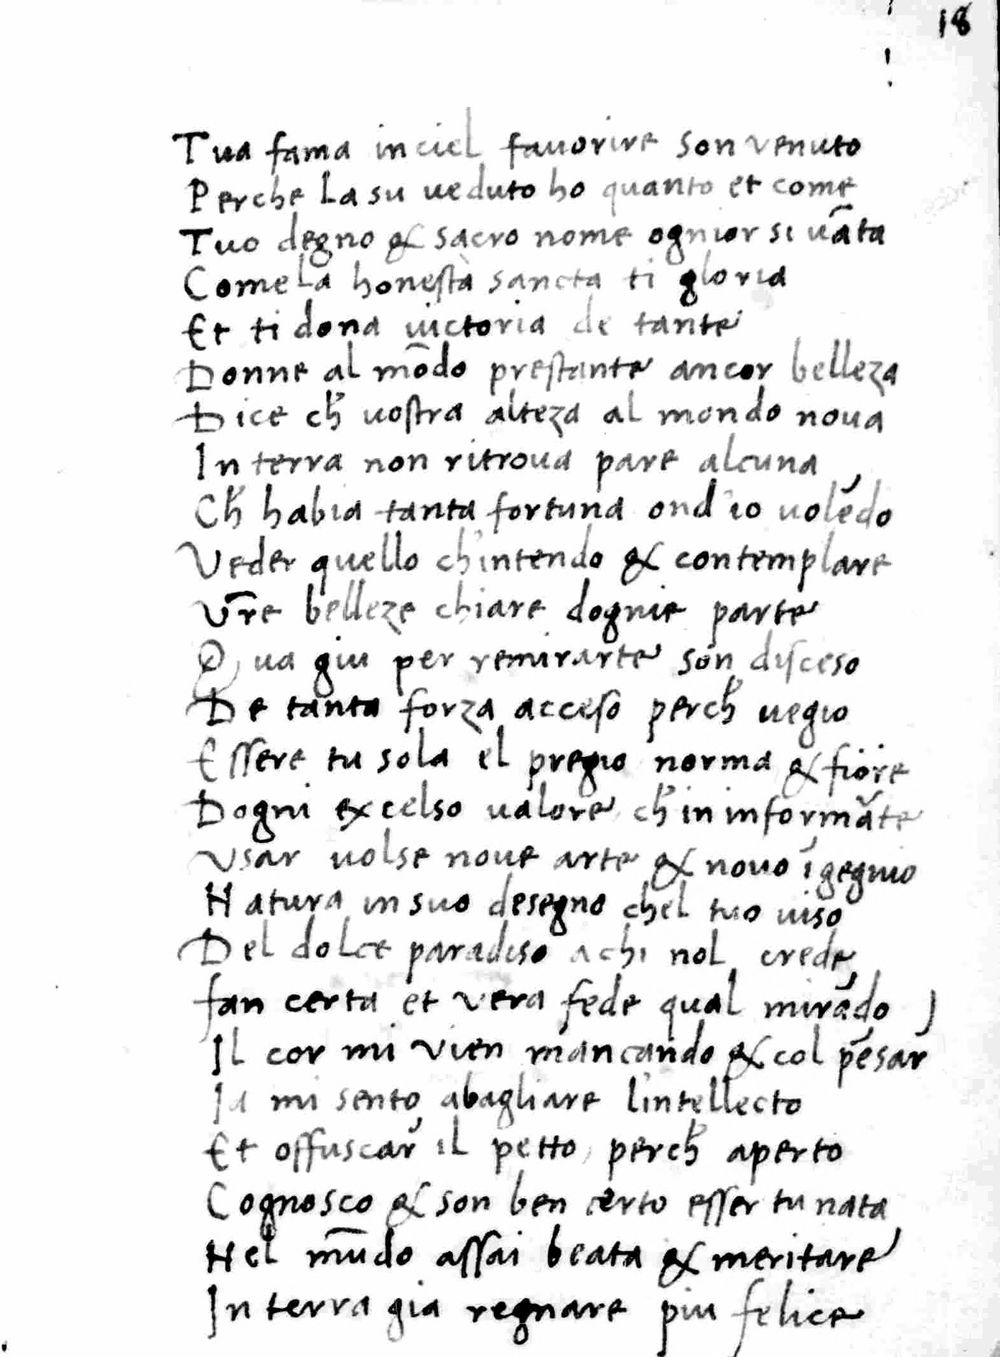 18
Tua fama in ciel fauorire son venuto
Perche La su ueduto ho quanto et come
Tuo degno & sacro nome ognior si uāta
Come La honestà sancta ti gloria
Et ti dona uictoria de tante
Donne al mōdo prestante ancor belleza
Dice ch̃ uostra alteza al mondo noua
In terra non ritroua pare alcuna
Ch̃ habia tanta fortuna ond'io uolēdo
Veder quello ch'intendo & contemplare
Vr̃e belleze chiare dognie parte
Qua giu per remirarte son disceso
De tanta forza acceso perch̃ uegio
Essere tu sola el pregio norma & fiore
Dogni excelso ualore ch̃ in informāte
Vsar uolse noue arte & nouo īgegnio
Natura in suo desegno chel tuo uiso
Del dolce paradiso a chi nol crede
fan certa et vera fede qual mirādo
Il cor mi vien mancando & col pēsar
Ia mi sento abagliare l'intellecto
Et offuscar il petto perch̃ aperto
Cognosco & son ben certo esser tu nata
Nel mūdo assai beata & meritare
In terra gia regnare piu felice